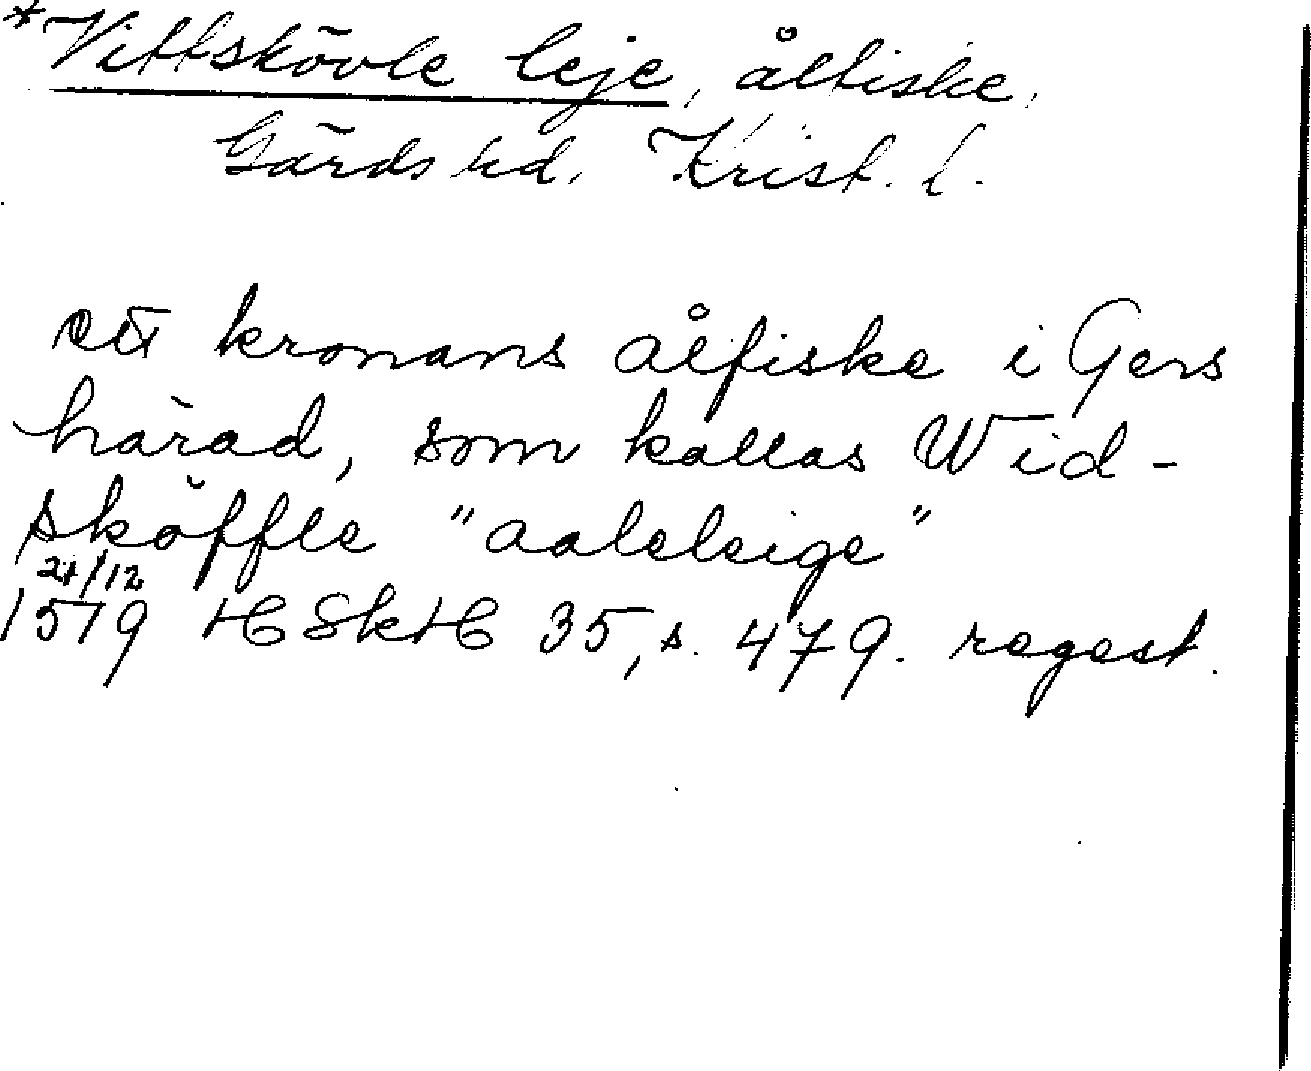 *Vittskövle leje, ålfiske,
Gärds hd, Krist. l.
ett kronans ålfiske i Gers
härad, som kallas Wid-
sköffle "aaleleige"
21/12
1579 HSkH 35, s. 479. regest.